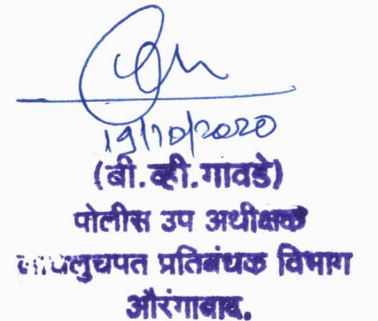 19/10/2020
(बी.व्ही.गावडे)
पोलीस उप अधीक्षक
लाचलुचपत प्रतिबंधक विभाग
औरंगाबाद.